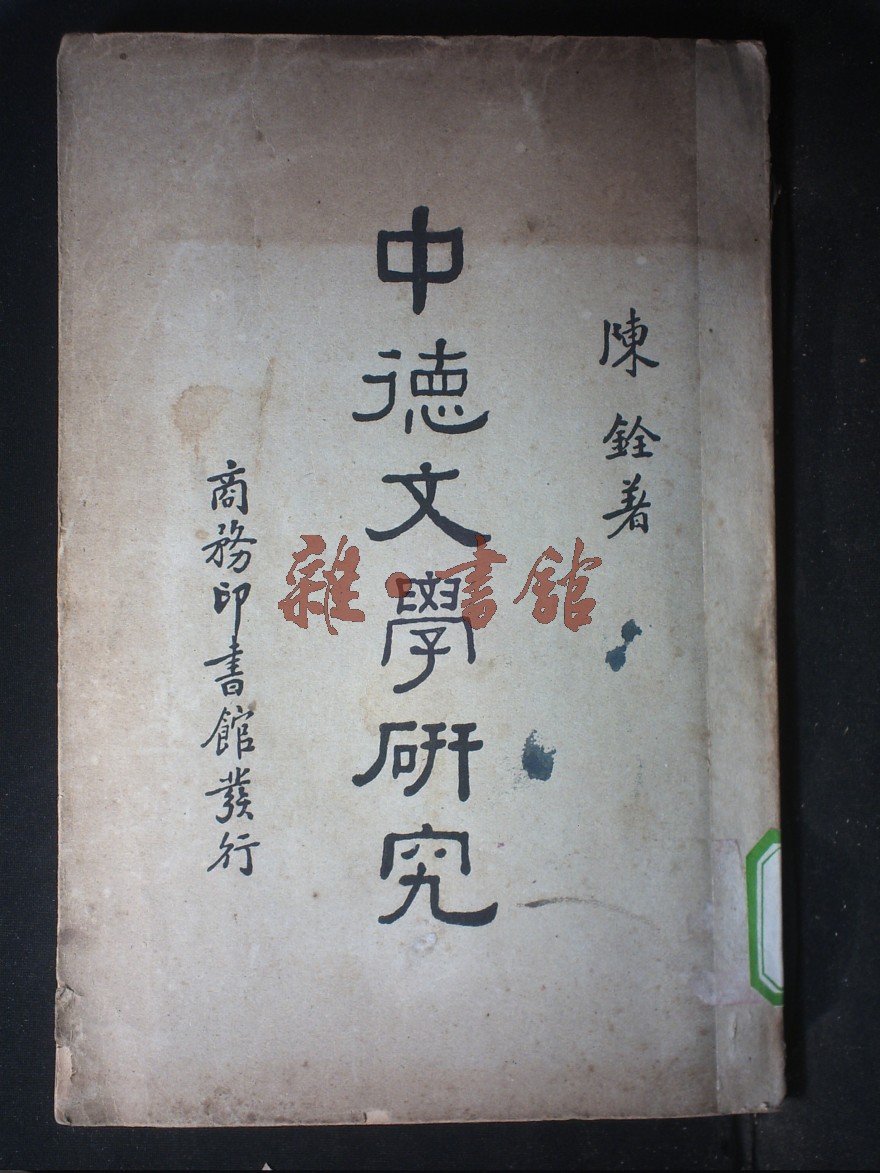 陳銓著
中德文學研究
商務印書館發行
雜·書館